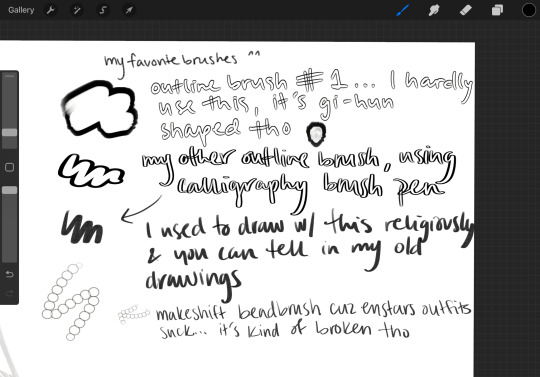 Gallery
my favorite brushes ^^
outline brush #1... I hardly
use this, it's gi-hun
shaped tho
my other outline brush, using
calligraphy brush pen
I used to draw w/ this religiously
& you can tell in my old
drawings
makeshift beadbrush cuz enstars outfits
suck... it's kind of broken tho